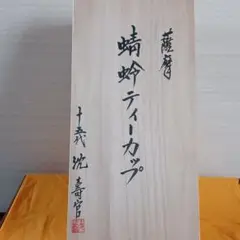 薩摩
蜻蛉ティーカップ
十五代 沈壽官